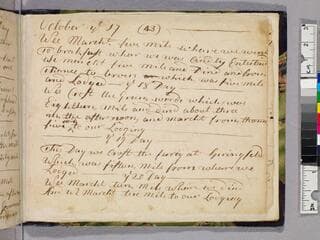 October ye 17 (43)
We Marcht five mile where we went
To brakfast where we was
We marcht five mile and Dine and from
thence to which was five mile
and Lodged — ye 18 Day
We Crost the Green woods which was
Eighteen mile and dind about three
in the afternoon, and marcht from thence
five to our Lodging
ye 19 Day
This Day we Crost the farey at Springfeld
Which was fifteen mile from where we
Lodged ye 20 Day
Wee Marcht ten mile where we dind
And We March ten mile to our Lodging